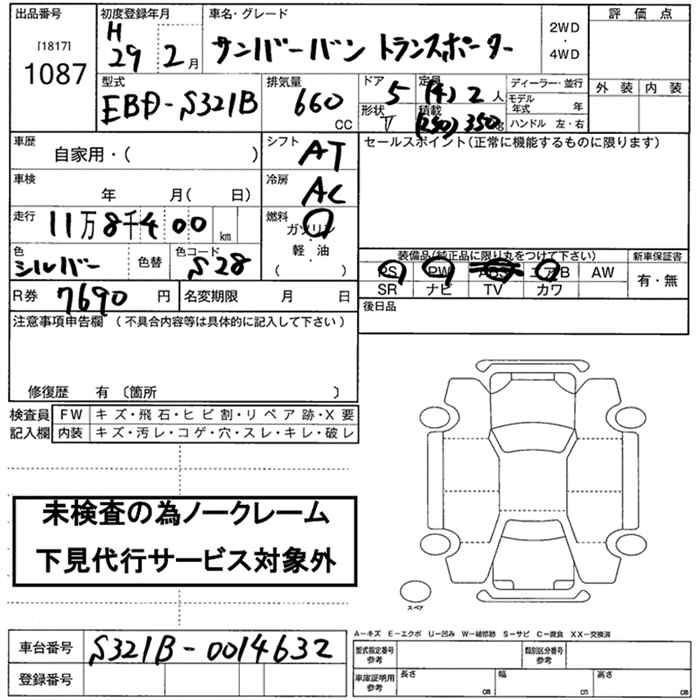 出品番号
[1817]
1087
初度登録年月
H
29 年 2 月
車名・グレード
サンバーバン トランスポーター
2WD
・
4WD
評価点
外装 内装
型式
EBD-S321B
排気量
660
CC
ドア
5
形状
V
定員
(4) 2 人
積載
(250) 350
ディーラー・並行
モデル
年式 年
ハンドル 左・右
車歴
自家用・( )
シフト
AT
セールスポイント(正常に機能するものに限ります)
車検
年 月( 日)
冷房
AC
走行
11万8千400
km
燃料
ガソリン
・
軽・油
( )
色
シルバー
色替
色コード
S28
装備品(純正品に限り丸をつけて下さい)
PS PW ABS エアB AW
SR ナビ TV カワ
新車保証書
有・無
R券 7690 円
名変期限 月 日
後日品
注意事項申告欄 (不具合内容等は具体的に記入して下さい)
修復歴 有 〔箇所 〕
検査員
記入欄
FW キズ・飛石・ヒビ割・リペア跡・X要
内装 キズ・汚レ・コゲ・穴・スレ・キレ・破レ
未検査の為ノークレーム
下見代行サービス対象外
スペア
車台番号 S321B-0014632
登録番号
A-キズ E-エクボ U-凹み W-補修跡 S-サビ C-腐食 XX-交換済
型式指定番号
参考
類別区分番号
参考
車庫証明用
参考
長さ cm
幅 cm
高さ cm